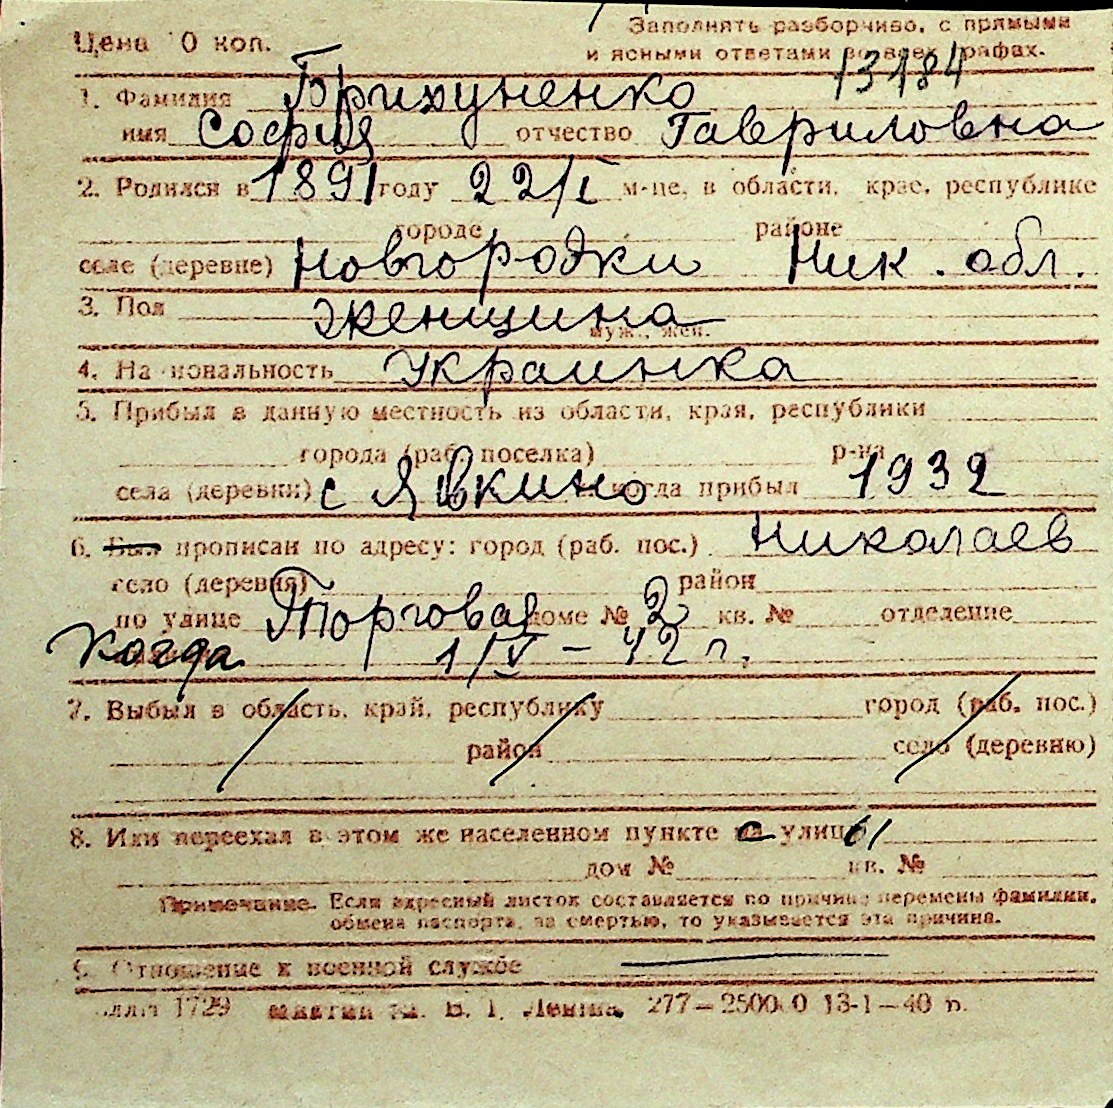 Цена 10 коп.
Заполнять разборчиво, с прямыми
и ясными ответами во всех графах.
13184
1. Фамилия Брихуненко
имя София отчество Гавриловна
2. Родился в 1891 году 22/I м-це, в области, крае, республике
городе районе
селе (деревне) Новгородки Ник. обл.
3. Пол женщина
муж., жен.
4. Национальность Украинка
5. Прибыл в данную местность из области, края, республики
города (раб. поселка) р-на
села (деревни) с Явкино когда прибыл 1932
6. Был прописан по адресу: город (раб. пос.) Николаев
село (деревня) район
по улице Торговая доме № 2 кв. № отделение
когда 1/V – 42 г.
7. Выбыл в область, край, республику город (раб. пос.)
район село (деревню)
8. Или переехал в этом же населенном пункте с улицы
дом № кв. №
Примечание. Если адресный листок составляется по причине перемены фамилии,
обмена паспорта, за смертью, то указывается эта причина.
9. Отношение к военной службе
1729 им. В. І. Леніна. 277—2500 0 13-1—40 р.